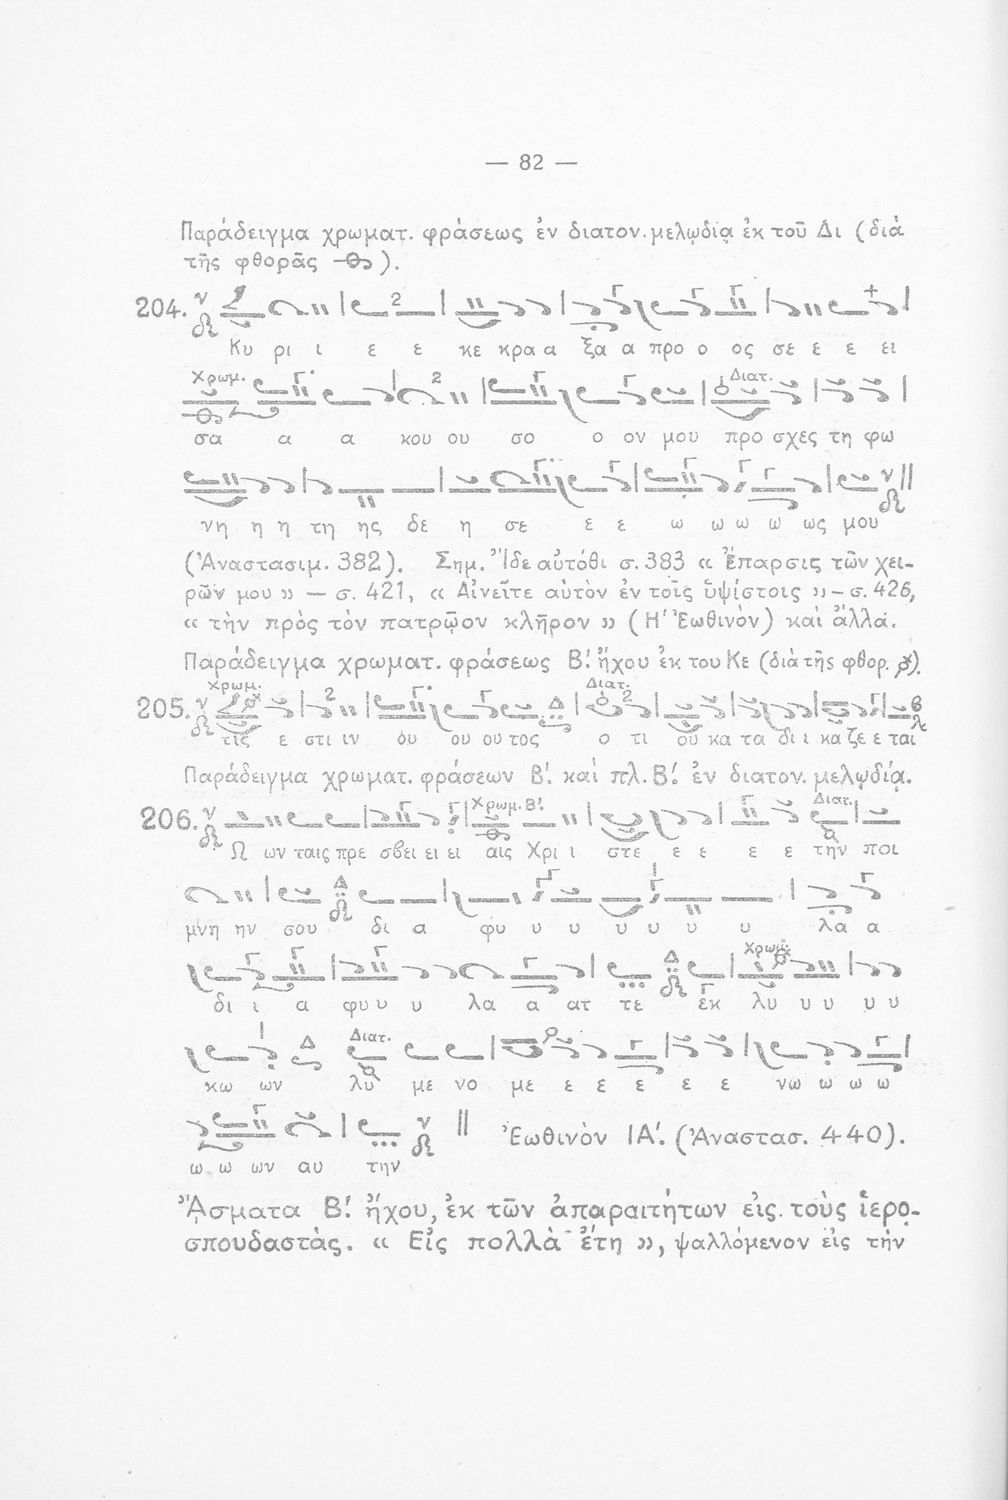 — 82 —
Παράδειγμα χρωματ. φράσεως ἐν διατον. μελῳδίᾳ ἐκ τοῦ Δι (διὰ
τῆς φθορᾶς ).
204.
Κυ ρι ι ε ε κε κρα α ξα α προ ο ος σε ε ε ει
Χρωμ. Διατ.
σα α α κου ου σο ο ον μου προ σχες τη φω
νη η η τη ης δε η σε ε ε ω ω ω ω ως μου
(Ἀναστασιμ. 382). Σημ. Ἴδε αὐτόθι σ. 383 « Ἔπαρσις τῶν χει-
ρῶν μου » — σ. 421, « Αἰνεῖτε αὐτὸν ἐν τοῖς ὑψίστοις » – σ. 426,
« τὴν πρὸς τὸν πατρῷον κλῆρον » ( Η΄ Ἑωθινὸν) καὶ ἄλλα.
Παράδειγμα χρωματ. φράσεως Β΄. ἤχου ἐκ του Κε (διὰ τῆς φθορ. ).
Χρωμ. Διατ.
205.
τις ε στι ιν ου ου ου τος ο τι ου κα τα δι ι κα ζε ε ται
Παράδειγμα χρωματ. φράσεων Β΄. καὶ πλ. Β΄. ἐν διατον. μελῳδίᾳ.
206. Χρωμ. Β΄. Διατ.
Ω ων ταις πρε σβει ει ει αις Χρι ι στε ε ε ε ε την ποι
μνη ην σου δι α φυ υ υ υ υ υ υ λα α
Χρωμ.
δι ι α φυ υ υ λα α ατ τε εκ λυ υ υ υ υ
Διατ.
κω ων λυ με νο με ε ε ε ε ε νω ω ω ω
Ἑωθινὸν ΙΑ΄. (Ἀναστασ. 440).
ω ω ων αυ την
ᾌσματα Β΄. ἤχου, ἐκ τῶν ἀπαραιτήτων εἰς τοὺς ἱερο-
σπουδαστάς. « Εἰς πολλὰ ἔτη », ψαλλόμενον εἰς τὴν